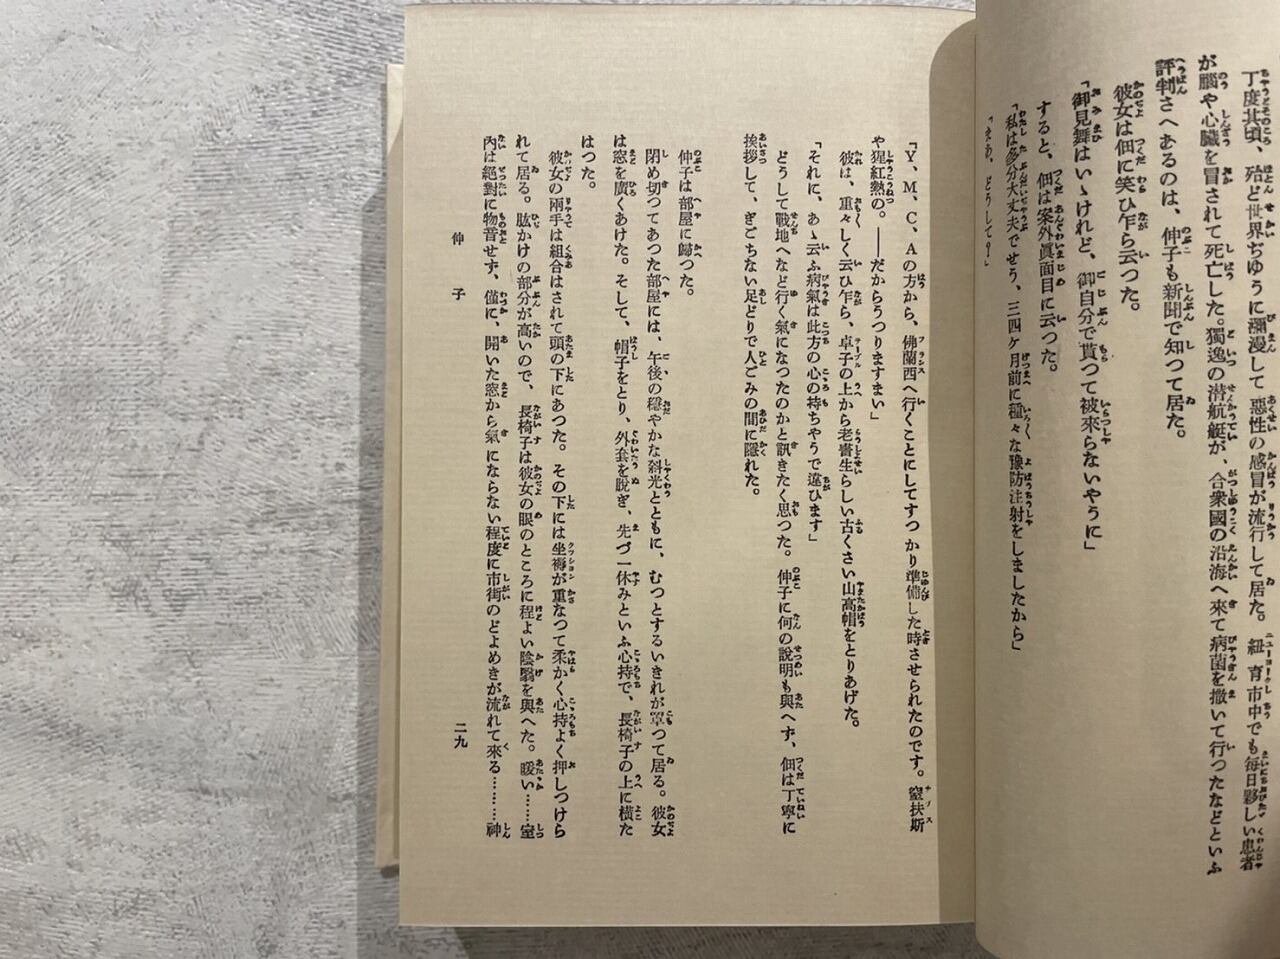 丁度其頃、殆ど世界ぢゆうに瀰漫して惡性の感冒が流行して居た。紐育市中でも毎日夥しい患者
が腦や心臟を冒されて死亡した。獨逸の潜航艇が、合衆國の沿海へ來て病菌を撒いて行つたなどといふ
評判さへあるのは、伸子も新聞で知つて居た。
彼女は佃に笑ひ乍ら云つた。
「御見舞はいゝけれど、御自分で貰つて被來らないやうに」
すると、佃は案外眞面目に云つた。
「私は多分大丈夫でせう、三四ケ月前に種々な豫防注射をしましたから」
「まあ、どうして?」
「Y、M、C、Aの方から、佛蘭西へ行くことにしてすつかり準備した時させられたのです。窒扶斯
や猩紅熱の。――だからうつりますまい」
彼は、重々しく云ひ乍ら、卓子の上から老書生らしい古くさい山高帽をとりあげた。
「それに、あゝ云ふ病氣は此方の心の持ちやうで違ひます」
どうして戰地へなど行く氣になつたのかと訊きたく思つた。伸子に何の説明も與へず、佃は丁寧に
挨拶して、ぎごちない足どりで人ごみの間に隱れた。
伸子は部屋に歸つた。
閉め切つてあつた部屋には、午後の穩やかな斜光とともに、むつとするいきれが罩つて居る。彼女
は窓を廣くあけた。そして、帽子をとり、外套を脱ぎ、先づ一休みといふ心持で、長椅子の上に横た
はつた。
彼女の兩手は組合はされて頭の下にあつた。その下には坐褥が重なつて柔かく心持よく押しつけら
れて居る。肱かけの部分が高いので、長椅子は彼女の眼のところに程よい陰翳を與へた。暖い……室
内は絕對に物音せず、僅に、開いた窓から氣にならない程度に市街のどよめきが流れて來る………神
伸子
二九